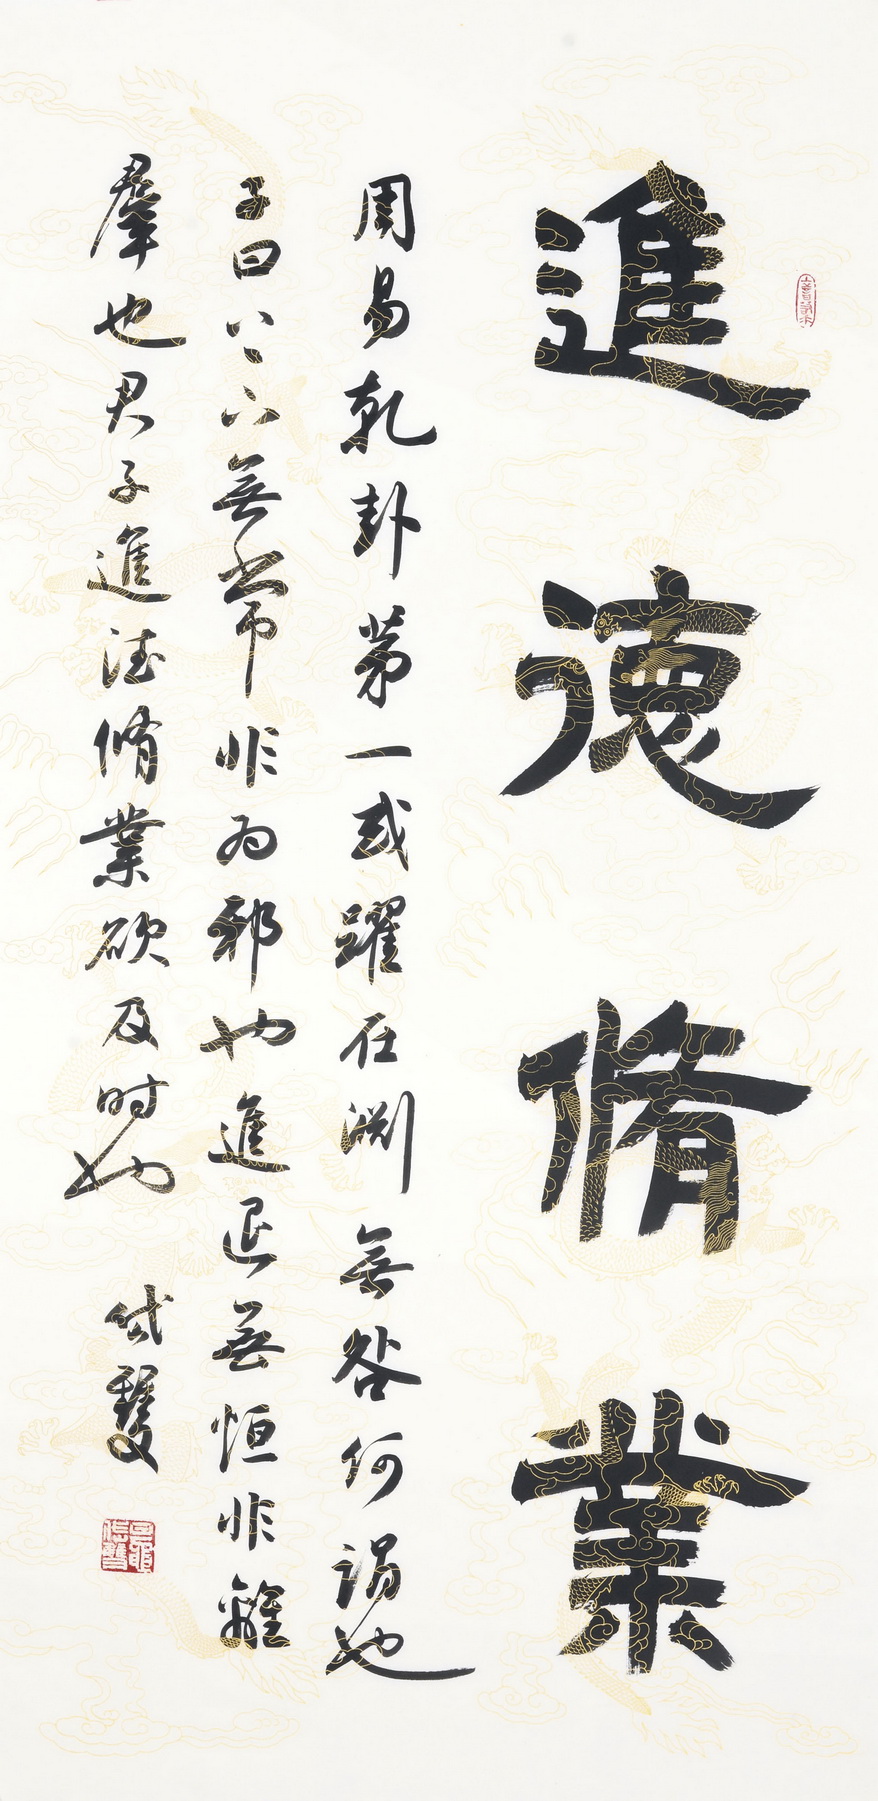 進德脩業
周易乾卦第一或躍在淵無咎何謂也
子曰上下無常非為邪也進退無恒非離
羣也君子進德脩業欲及時也